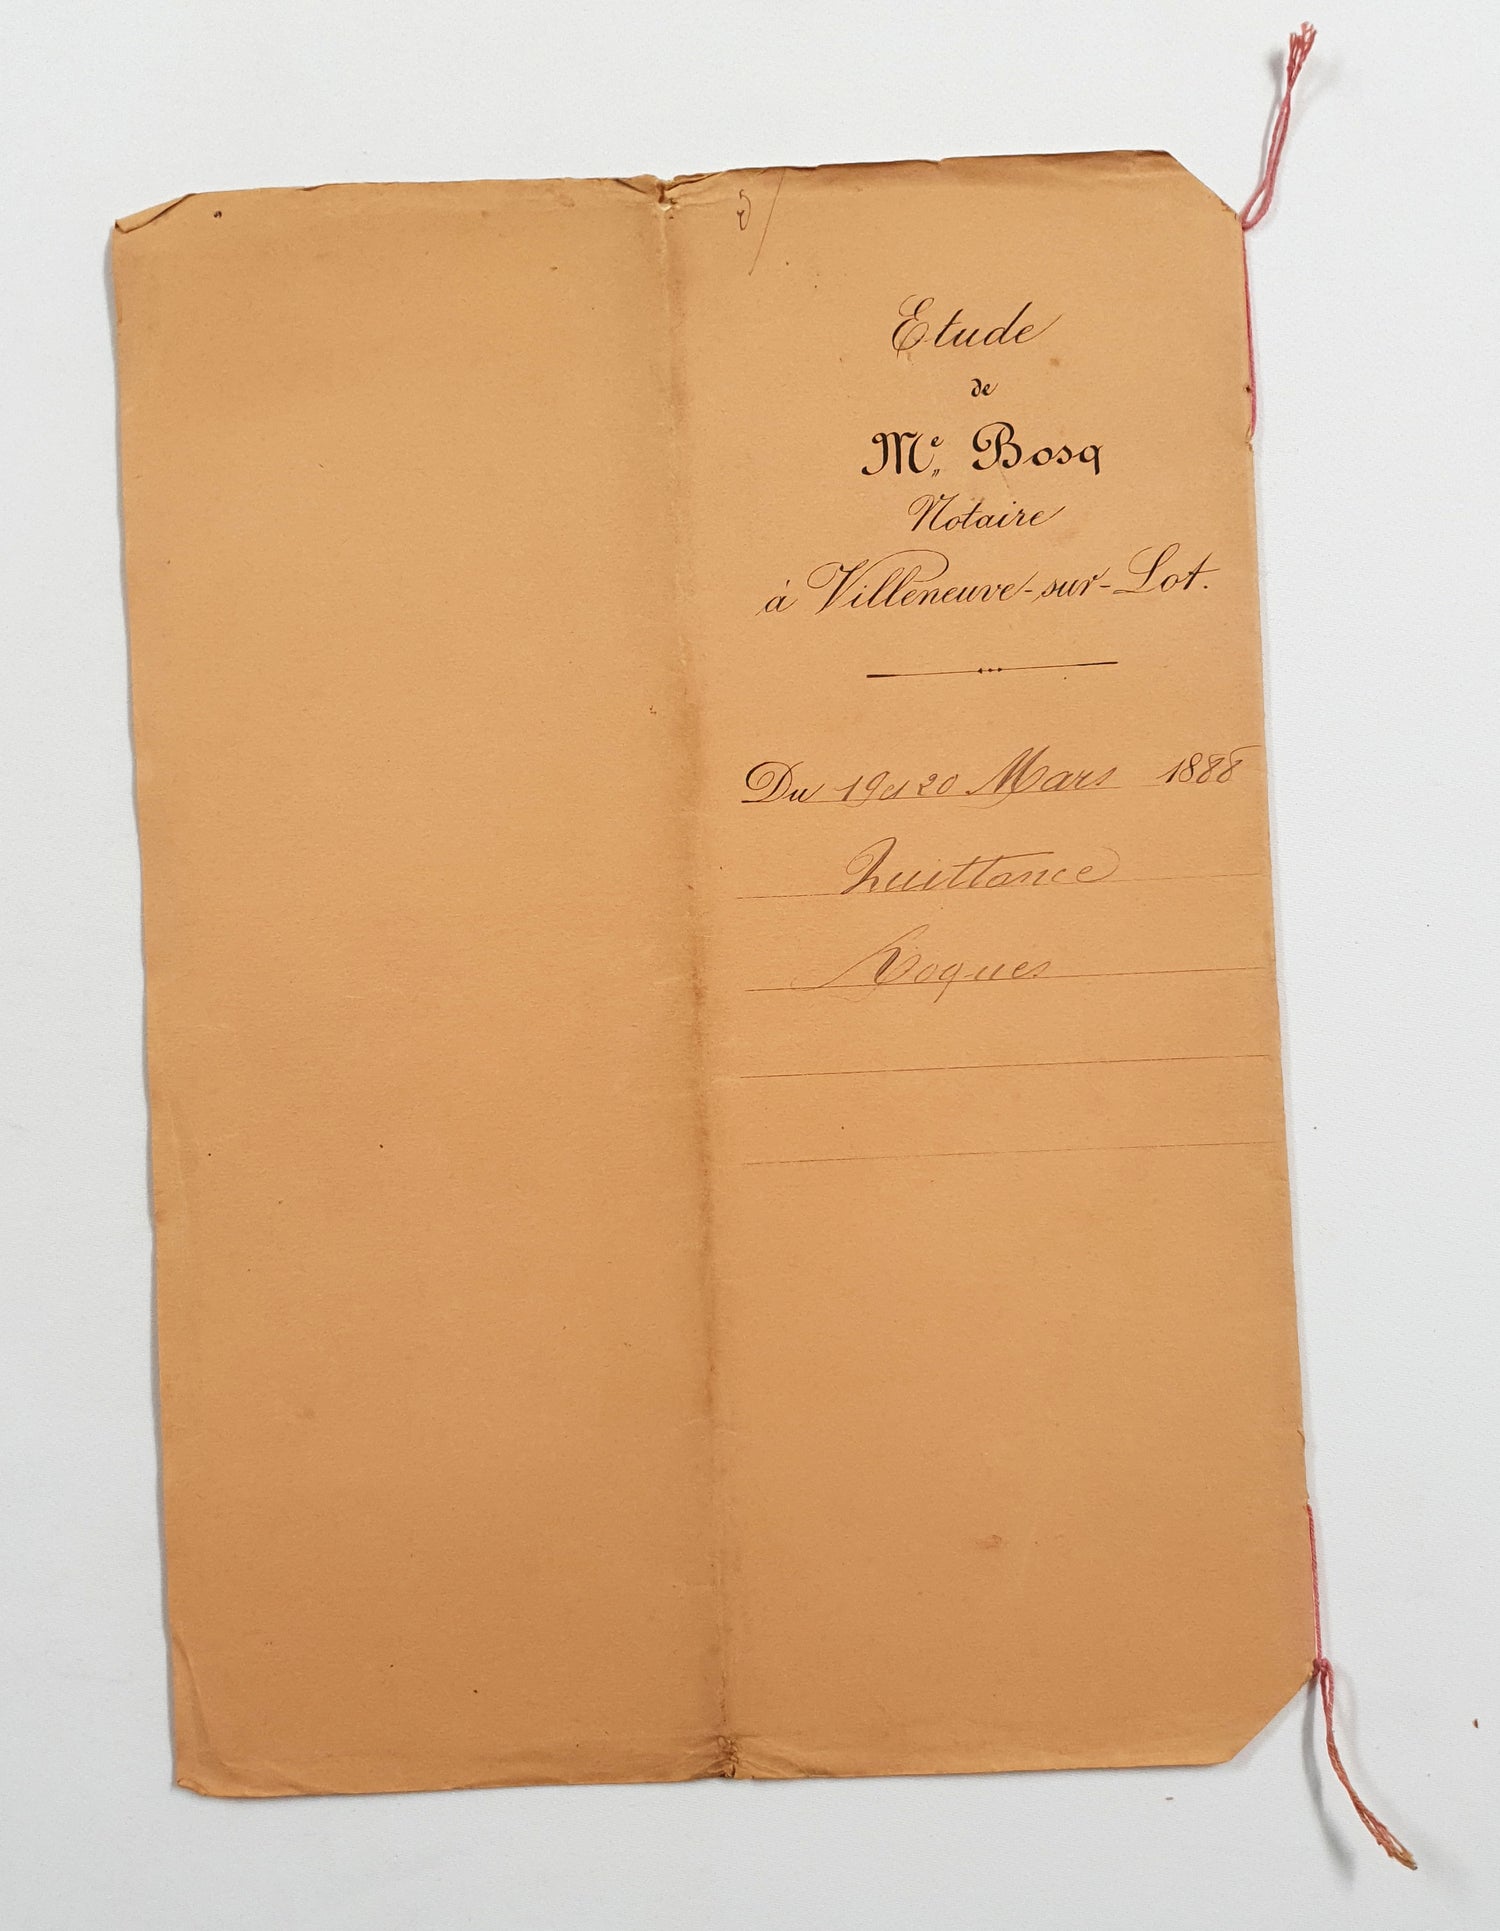 Etude
de
Me. Bosq
Notaire
à Villeneuve-sur-Lot.
Du 19 et 20 Mars 1888
Quittance
Roques